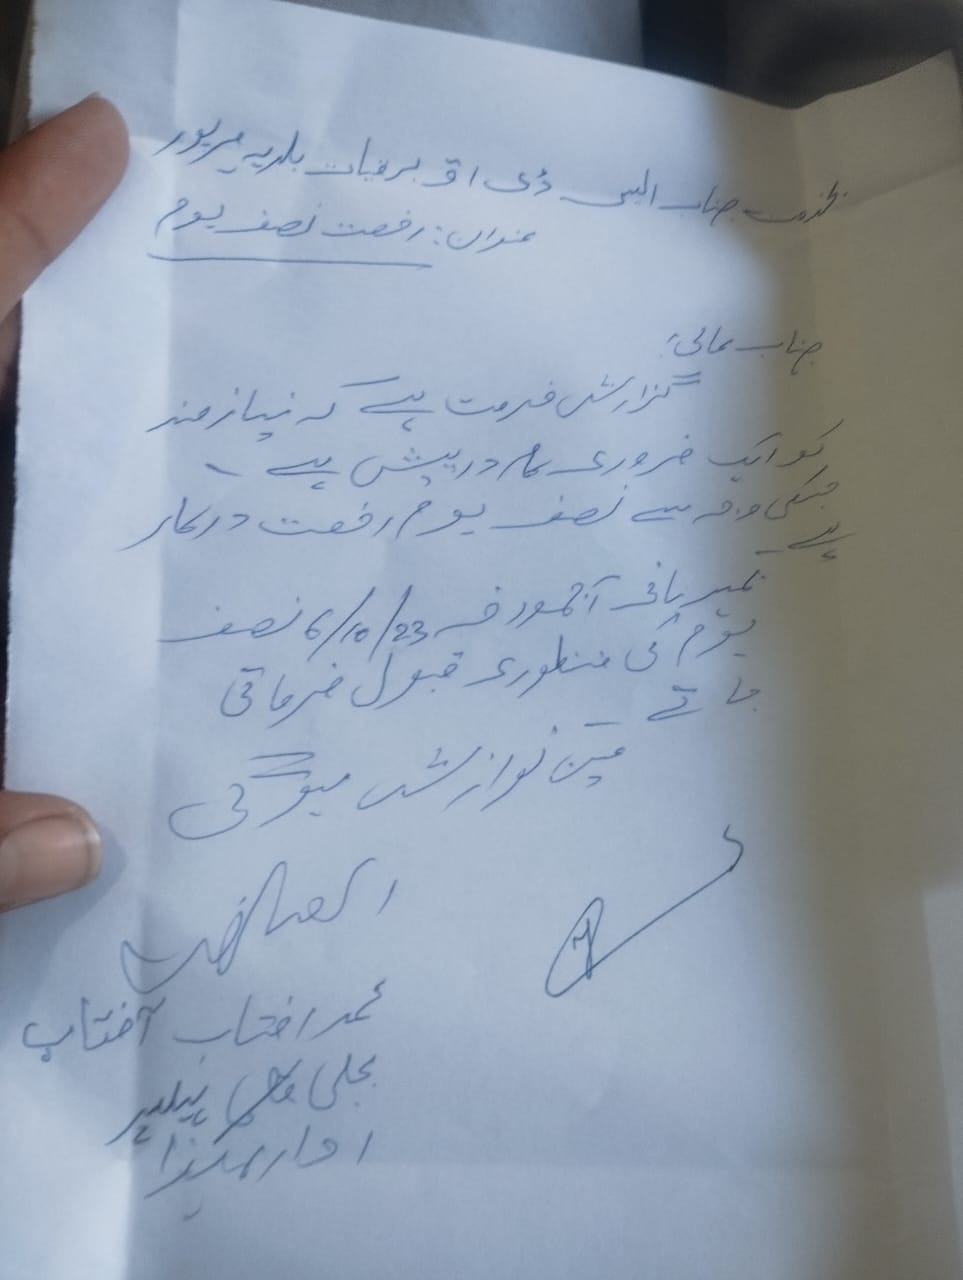 بخدمت جناب ایس ڈی او برقیات بلدیہ میرپور
عنوان: رخصت نصف یوم
جناب عالی!
گزارش خدمت ہے کہ نیازمند
کو ایک ضروری کام درپیش ہے ۔
جسکی وجہ سے نصف یوم رخصت درکار
ہے۔
مہربانی آج مورخہ 6/10/23 نصف
یوم کی منظوری قبول فرمائی
جائے
عین نوازش ہوگی
العارض
محمد افتاب آفتاب
بجلی ہیلپر
ادارہ ہذا